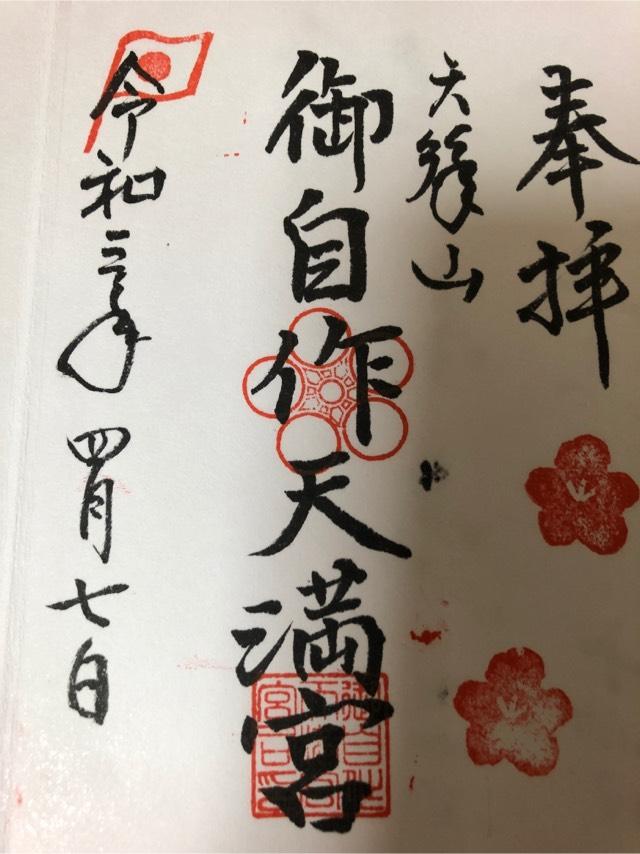 奉拝
天
山
御自作天満宮
令和三年四月七日